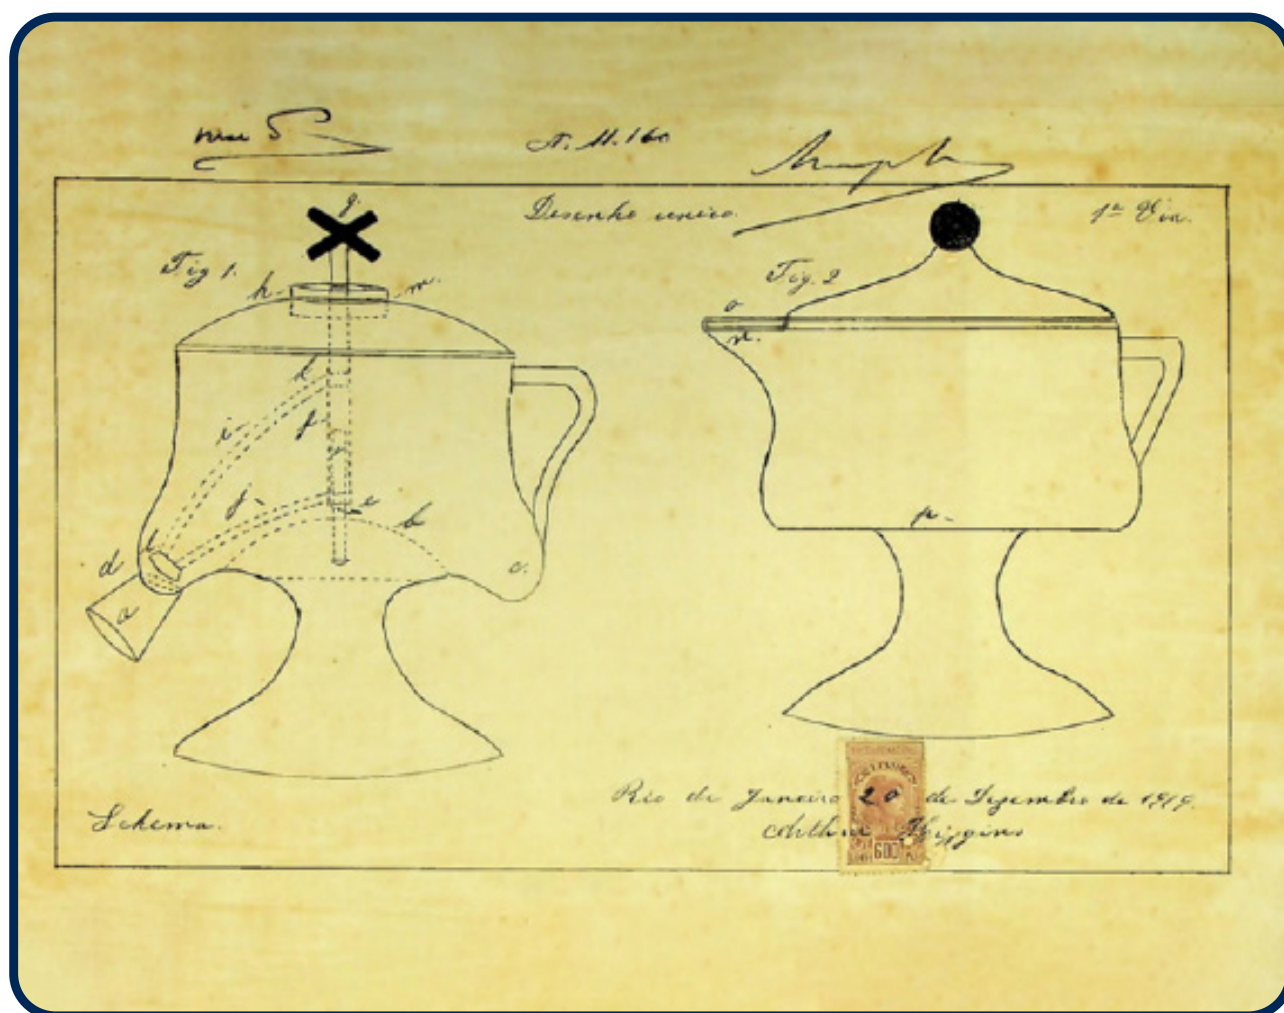 N. 11.160
Desenho unico.
1ª Via.
Fig 1.
g.
h.
m.
k
i
f.
j.
e
b
l
d
a
c.
Fig. 2
o
n.
p.
Schema.
Rio de Janeiro 20 de Dezembro de 1919.
Arthur Higgins
600